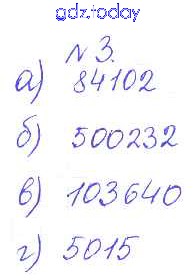 gdz.today
№ 3.
а) 84102
б) 500232
в) 103640
г) 5015